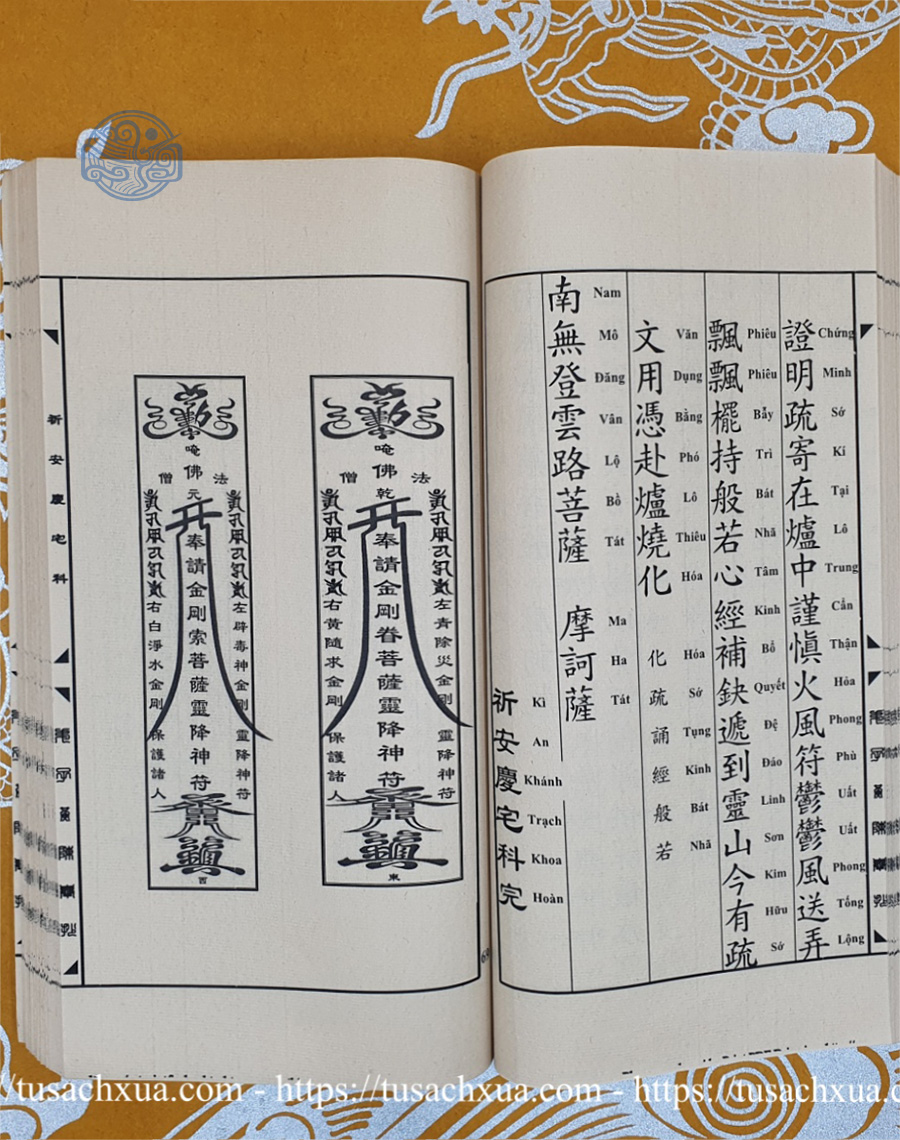 證明疏寄在爐中謹愼火風符鬱鬱風送弄
Chứng Minh Sớ Kí Tại Lô Trung Cẩn Thận Hỏa Phong Phù Uất Uất Phong Tống Lộng
飄飄擺持般若心經補缺遞到靈山今有疏
Phiêu Phiêu Bẫy Trì Bát Nhã Tâm Kinh Bổ Quyết Đệ Đáo Linh Sơn Kim Hữu Sớ
文用憑赴爐燒化
Văn Dụng Bằng Phó Lô Thiêu Hóa
化疏誦經般若
Hóa Sớ Tụng Kinh Bát Nhã
南無登雲路菩薩
Nam Mô Đăng Vân Lộ Bồ Tát
摩訶薩
Ma Ha Tát
祈安慶宅科完
Kì An Khánh Trạch Khoa Hoàn
唵
法佛僧
乾
奉請金剛眷菩薩靈降神符
左青除災金剛
靈降神符
右黃隨求金剛
保護諸人
東
唵
法佛僧
元
奉請金剛索菩薩靈降神符
左辟毒神金剛
靈降神符
右白淨水金剛
保護諸人
西
祈安慶宅科
https://tusachxua.com - https://tusachxua.com - https://tusachxua.com